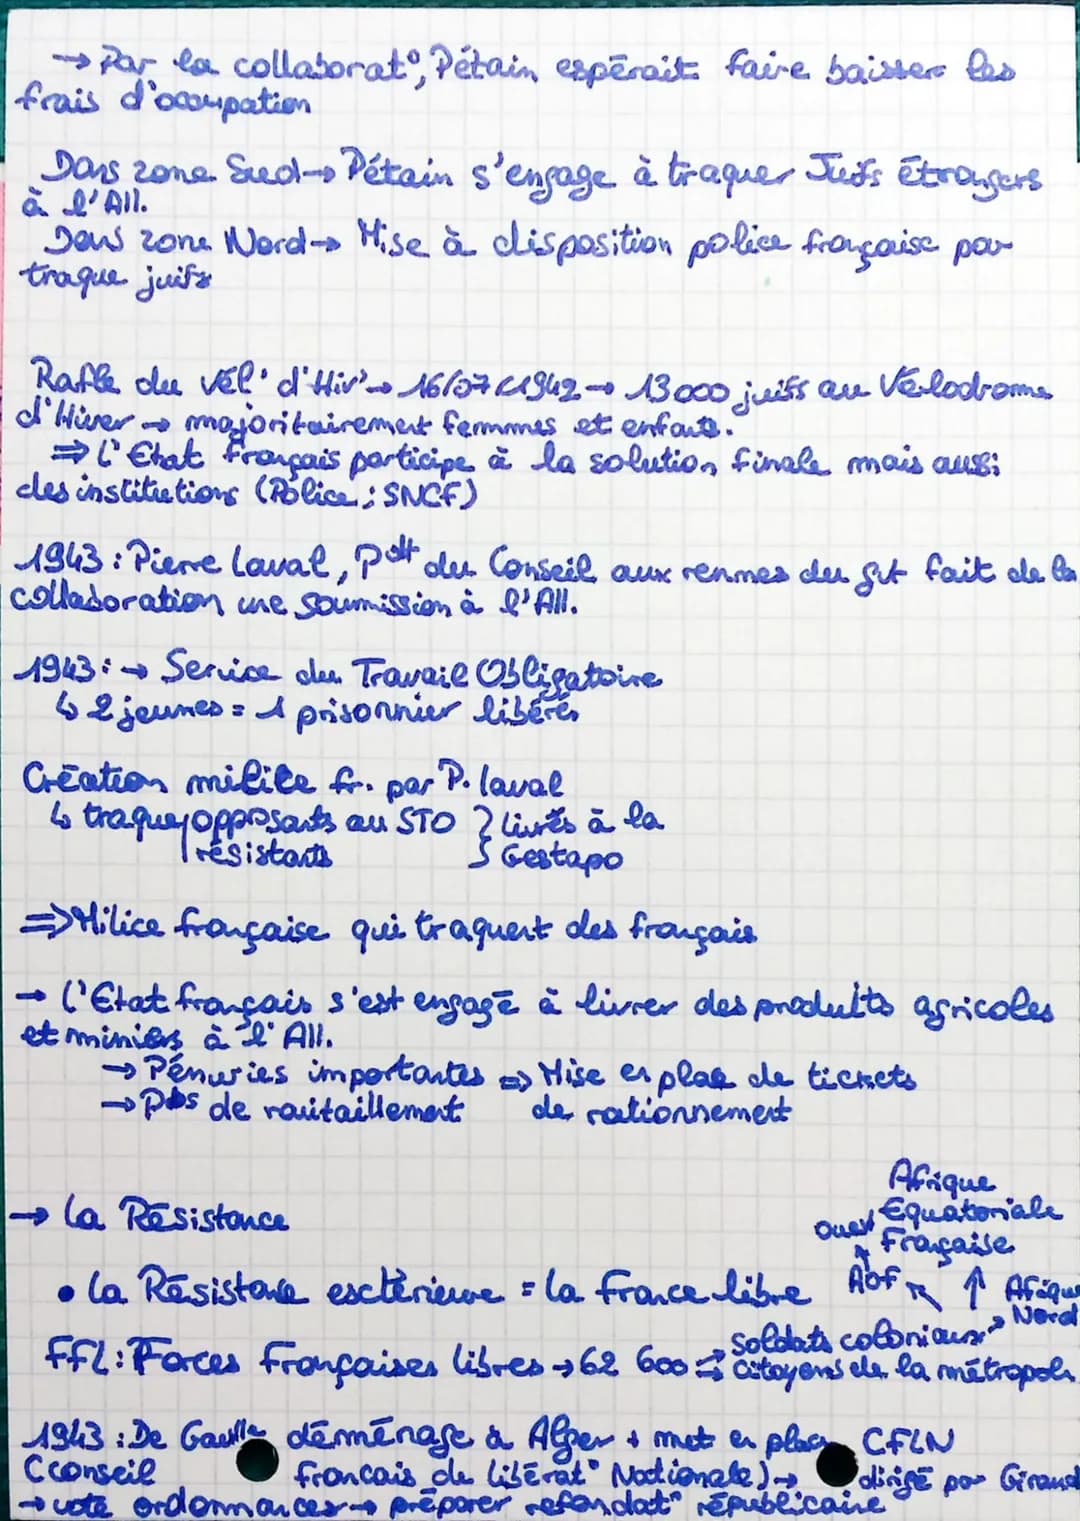 → Par la collarborat°, Pétain espérait faire baisser les
frais d'occupation
Dans zone Sud → Pétain s'engage à traquer Juifs étrangers
à l'All.
Dans zone Nord → Mise à disposition police française pour
traque juifs
Rafle du Vél' d'Hiv' → 16/07/1942 → 13 000 juifs au Vélodrome
d'Hiver → majoritairement femmes et enfants.
⇒ L'Etat Français participe à la solution finale mais aussi
des institutions (Police ; SNCF)
1943 : Pierre Laval, Pdt du Conseil aux rennes du gvt fait de la
collaboration une soumission à l'All.
1943 : → Service du Travail Obligatoire
↳ 2 jeunes = 1 prisonnier libérés
Création milice fr. par P. Laval
↳ traque opposants au STO } livrés à la
résistants } Gestapo
⇒ Milice française qui traquent des français
→ L'Etat français s'est engagé à livrer des produits agricoles
et miniers à l'All.
→ Pénuries importantes ⇒ Mise en place de tickets
→ Pbs de ravitaillement de rationnement
Afrique
→ La Résistance ouest Equatoriale
Française
• La Résistance esctérieure = la France libre AOF ↖ ↑ Afrique
Nord
soldats coloniaux
FFL : Forces Françaises Libres → 62 600 → citoyens de la métropole
1943 : De Gaulle déménage à Alger + met en place CFLN
(conseil francais de libérat° Nationale) → dirigé par Giraud
→ vote ordonnances → préparer refondat° républicaine